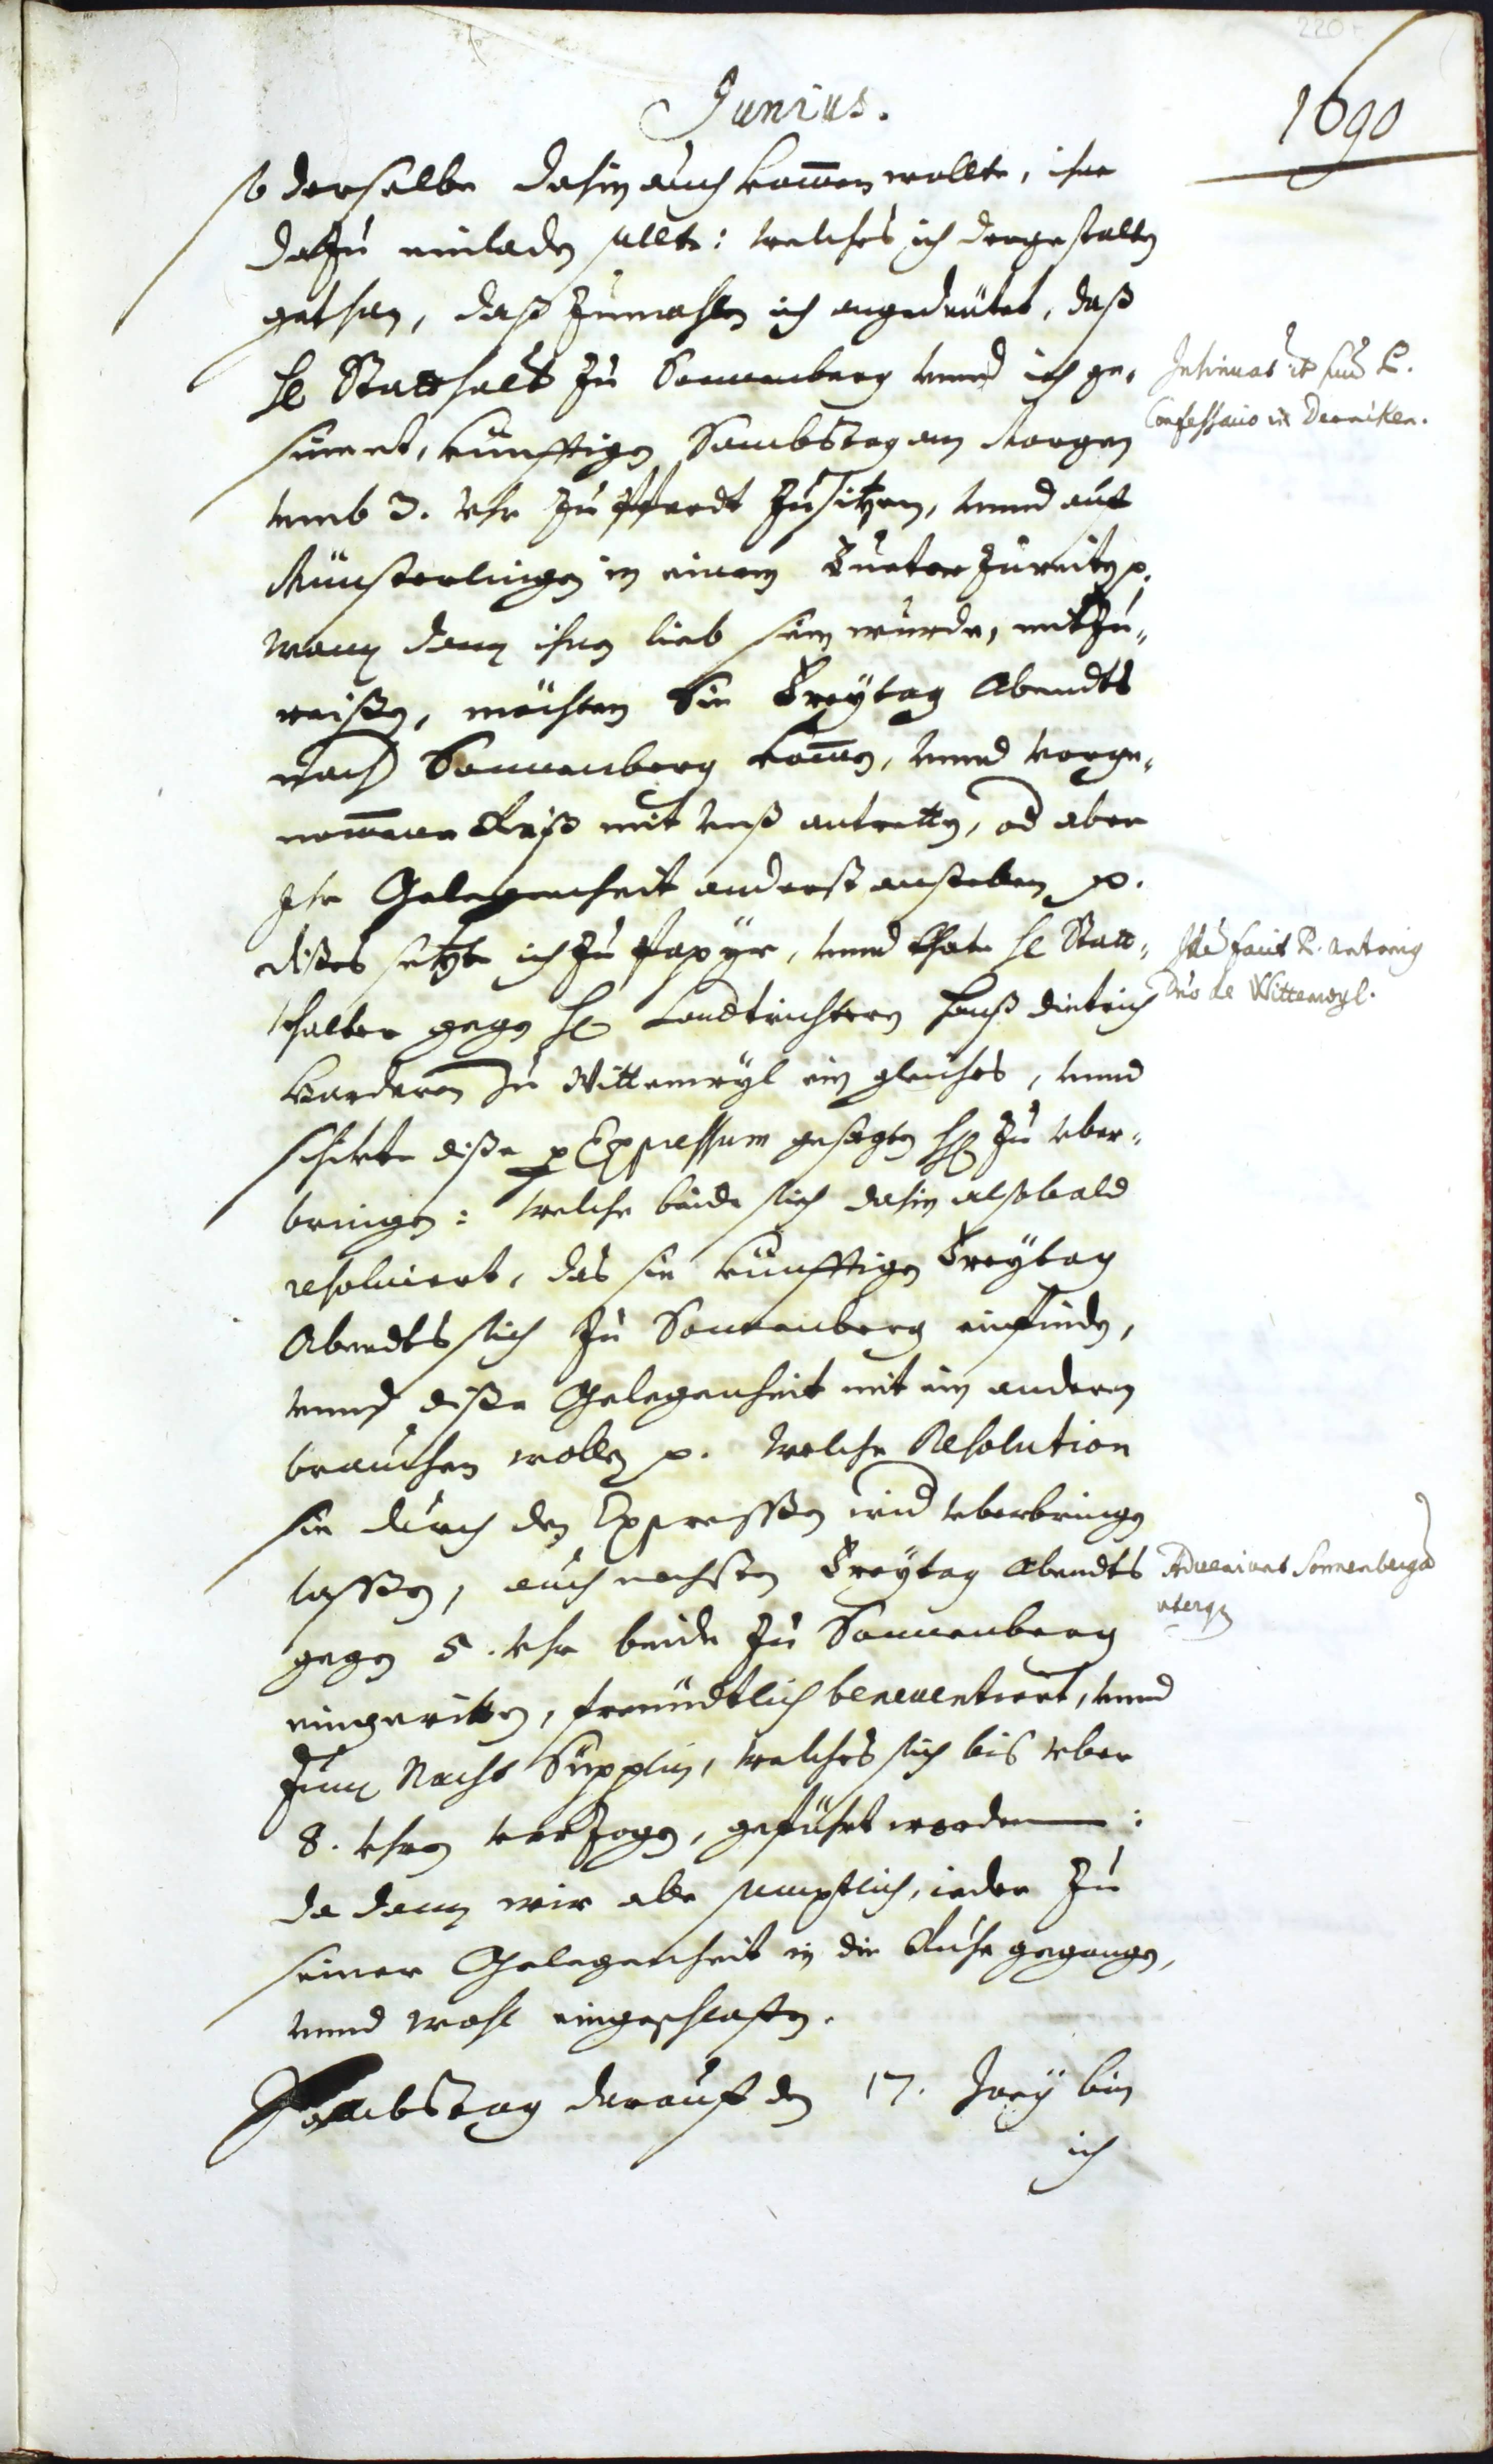 220r
Junius.
1690
so derselbe dahin auch kom̄en wollte, ihne
dazu einladen sollte: welches ich dergestalten
gethan, daß zumahlen ich angedeütet, daß
He Statthalter zu Sonnenberg vnnd ich ge-
sinnet, künfftigen Sambstag am Morgen
vmb 3. Vhr zu Pferdt zu sitzen, vnnd auf
Münsterlingen in einem Fueter zureiten p.
wann dann ihnen lieb sein wurde, mitzu-
reißen, möchten Sie Freytag Abendts
nach Sonnenberg kom̄en, vnnd vorge-
nom̄ene Reiß mit vnß antretten, od aber
Ihr Gelegenheit anderst anstellen p.
dißes setzte ich zu Papÿr, vnnd thate He Statt-
halter gegen H Landtrichtern Hanß Dietrich
Harderen zu Wittenwÿl ein gleiches, vnnd
schikte diße p Expressum gesagten HH zu vber-
bringen: welche beide sich dahin alsobald
resolviert, das sie künfftigen Freytag
Abendts sich zu Sonnenberg einfinden,
vnnd diße Gelegenheit mit ein anderen
brauchen wollen p. welche Resolution
sie durch den Expressen vnd vberbringen
lassen, auch nechsten Freytag Abendts
gegen 5. Vhr beide zu Sonnenberg
eingeritten, freündtlich beneventiert, vnnd
zum Nacht Süpplin, welches sich bis vber
8. Vhren verzogen, geführt worden:
da dann wir alle samptlich, ieder zu
seiner Gelegenheit in die Ruhe gegangen,
vnnd wohl eingeschlaffen.
Sambstag darauf den 17. Juny bin
ich
Intimat it
Confessario in Deniken.
Id facit P.
Dno de Wittenwyl.
Adveniunt Sonnenbergâ
uterq